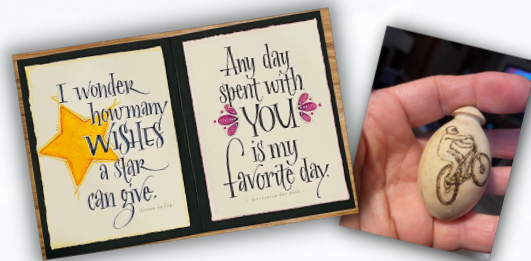 I wonder
how many
WISHES
a star
can give.
Any day
spent with
YOU
is my
favorite day.